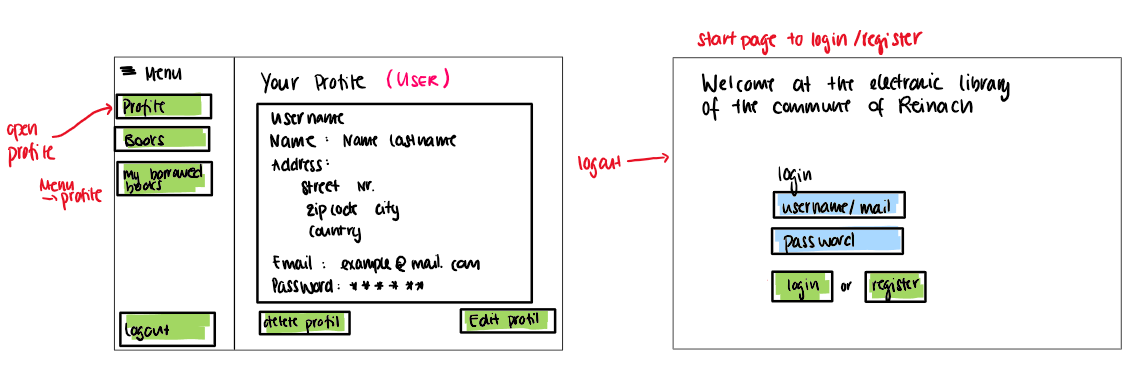 Menu
Profile
Books
My borrowed
books
logout
open
profile
Menu
→ profile
Your Profile (USER)
username
Name : Name lastname
Address:
Street Nr.
zip code city
country
Email : example@mail.com
Password: ******
delete profil
Edit profil
start page to login/register
Welcome at the electronic library
of the commune of Reinach
logout
login
username/mail
password
login or register